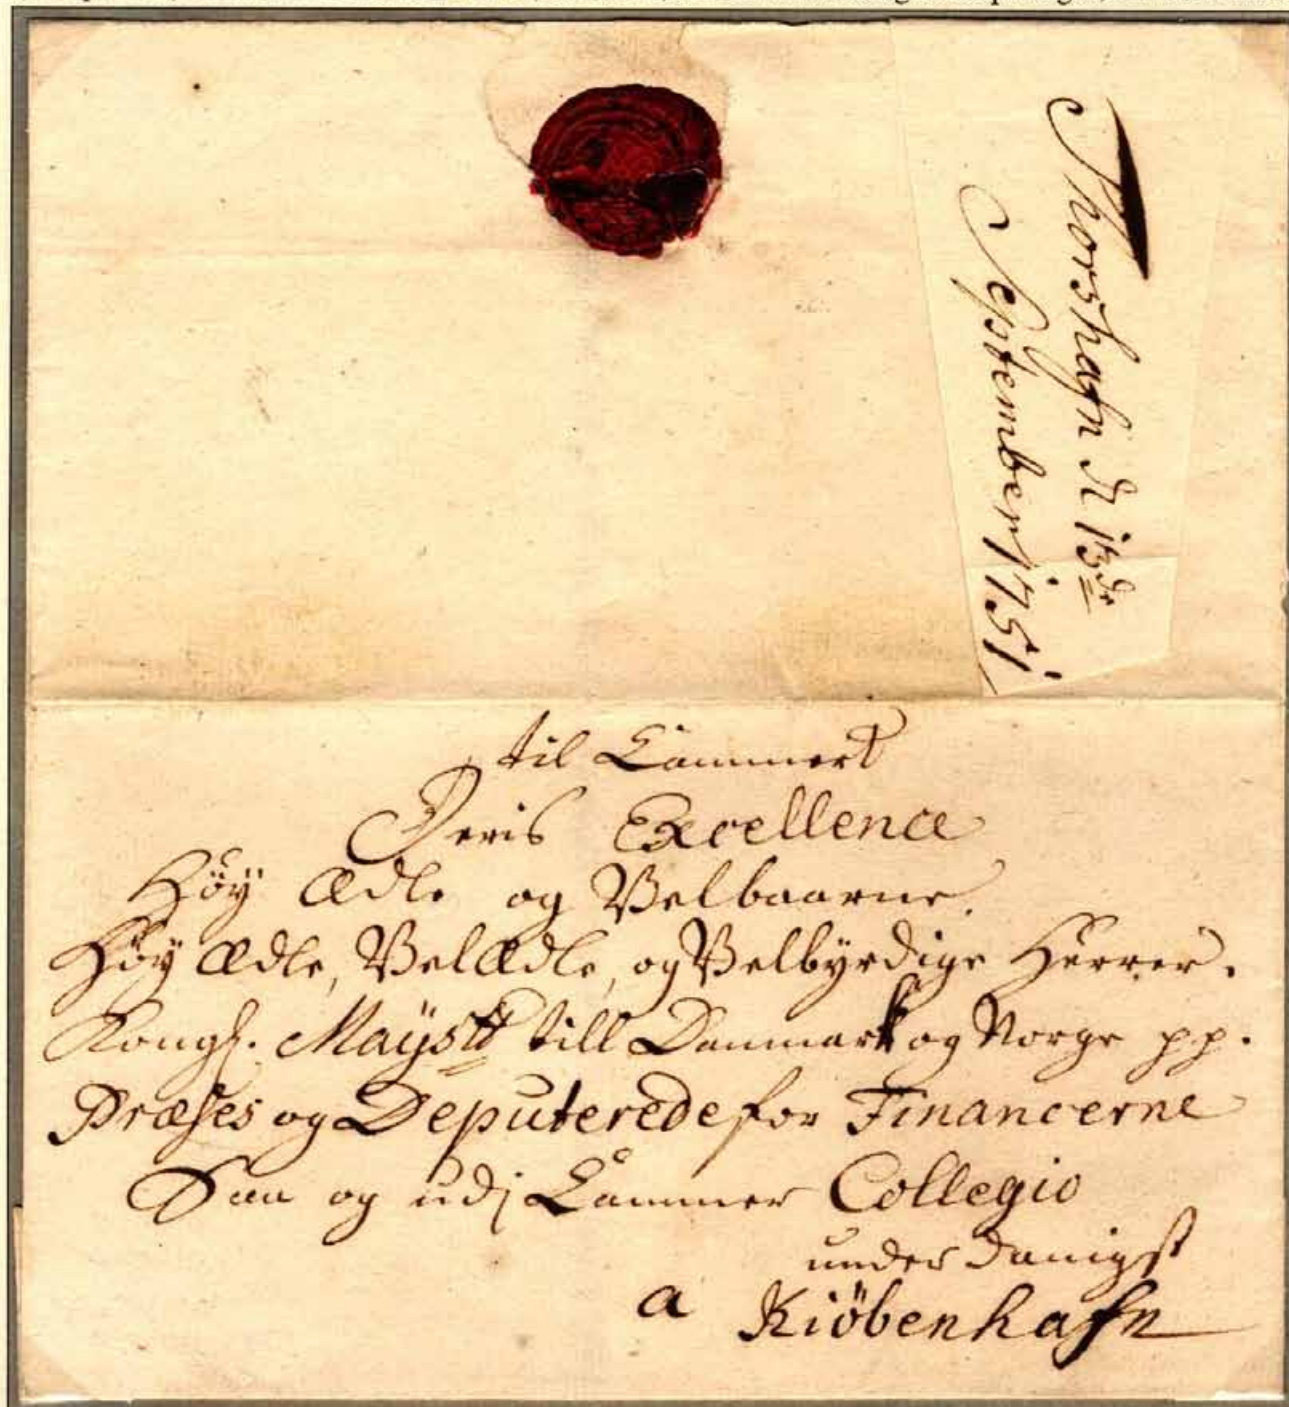 Thorshafn d 13de
September 1751
til Cammeret
Deris Excellence
Høy Ædle og Velbaarne.
Høy Ædle, VelÆdle, og Velbyrdige Herrer.
Kongl. Mayst till Danmark og Norge pp.
Præses og Deputerede for Financerne
Saa og udj Cammer Collegio
underdanigst
a Kiöbenhafn